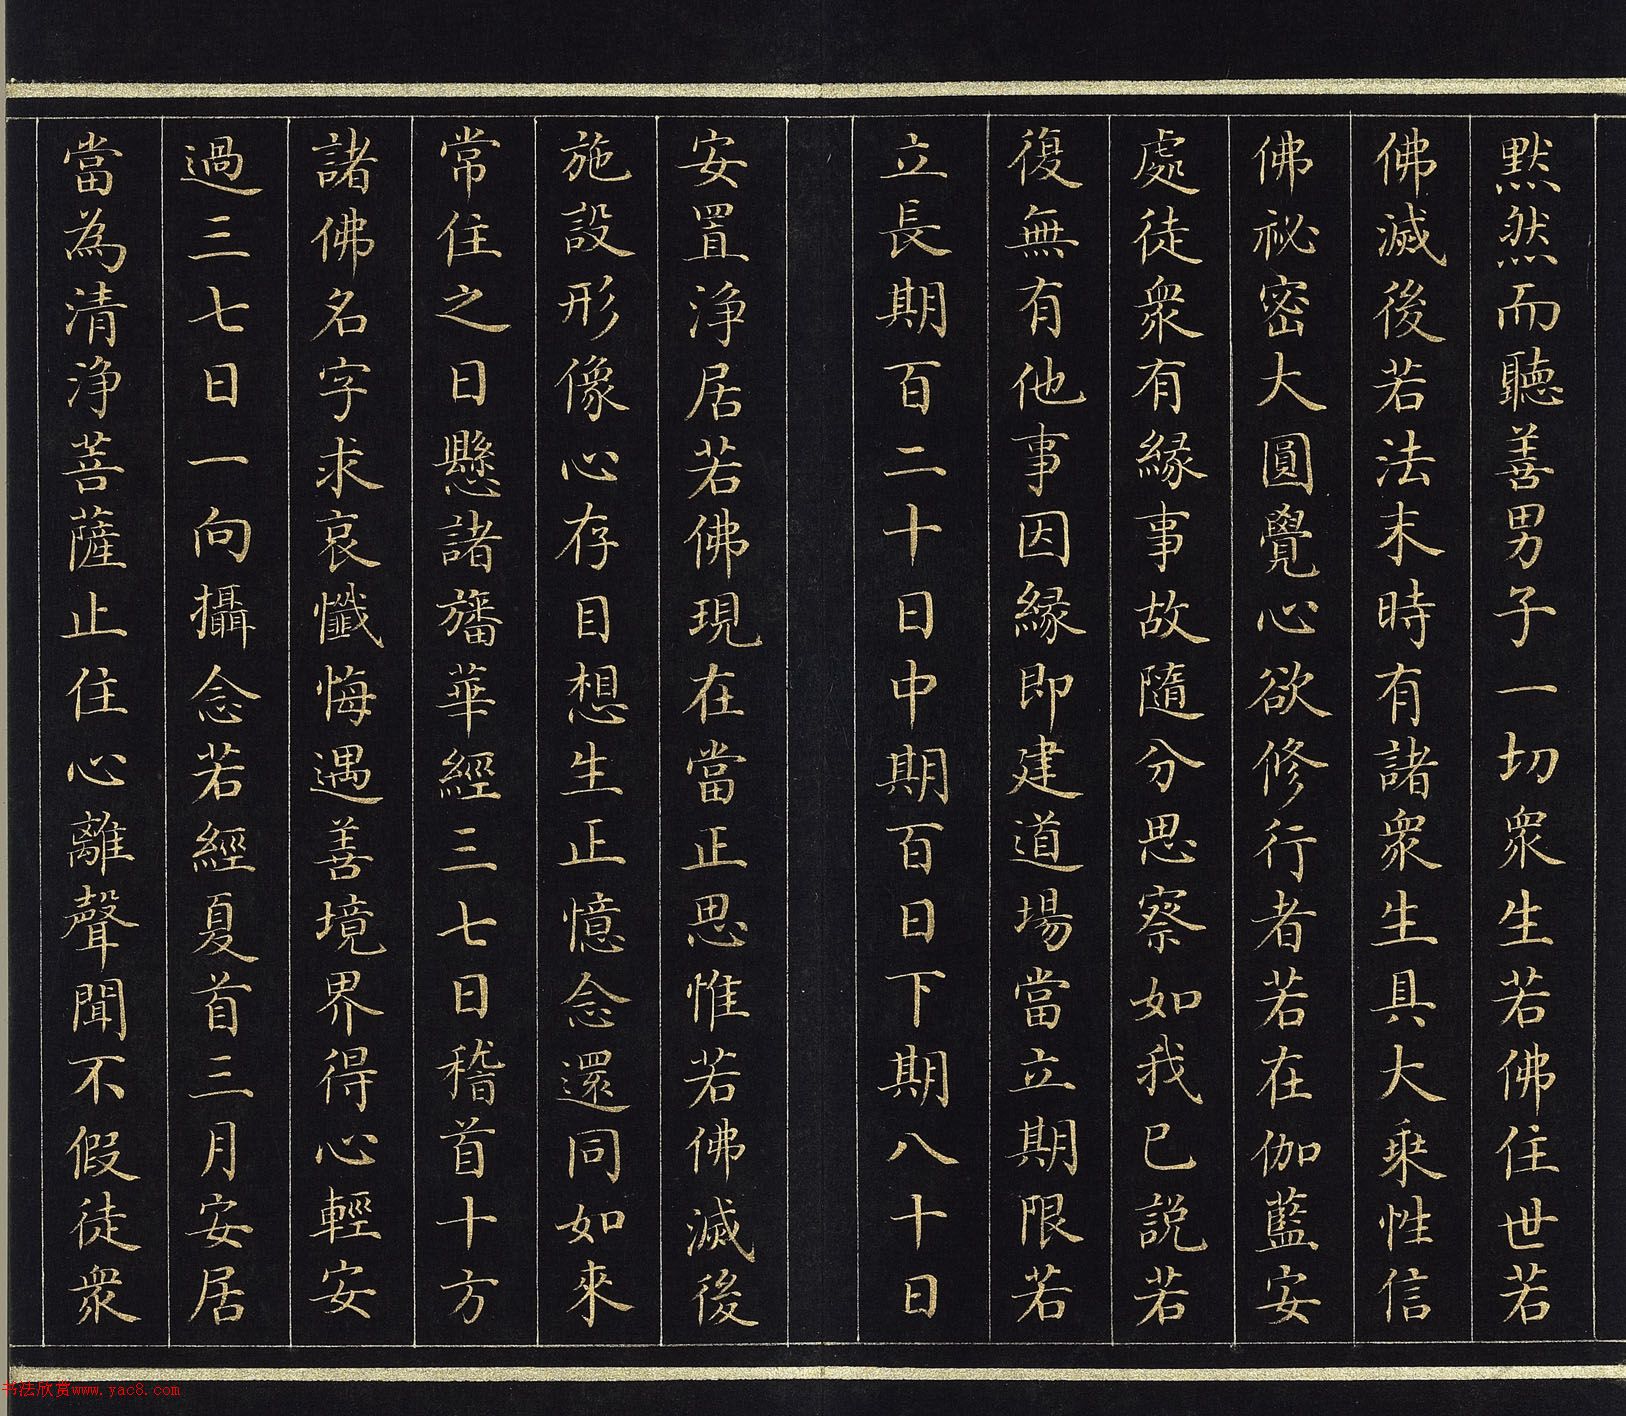 默然而聽善男子一切衆生若佛住世若
佛滅後若法末時有諸衆生具大乘性信
佛祕密大圓覺心欲修行者若在伽藍安
處徒衆有緣事故隨分思察如我已說若
復無有他事因緣即建道場當立期限若
立長期百二十日中期百日下期八十日
安置淨居若佛現在當正思惟若佛滅後
施設形像心存目想生正憶念還同如來
常住之日懸諸旛華經三七日稽首十方
諸佛名字求哀懺悔遇善境界得心輕安
過三七日一向攝念若經夏首三月安居
當為清淨菩薩止住心離聲聞不假徒衆
书法欣赏www.yac8.com